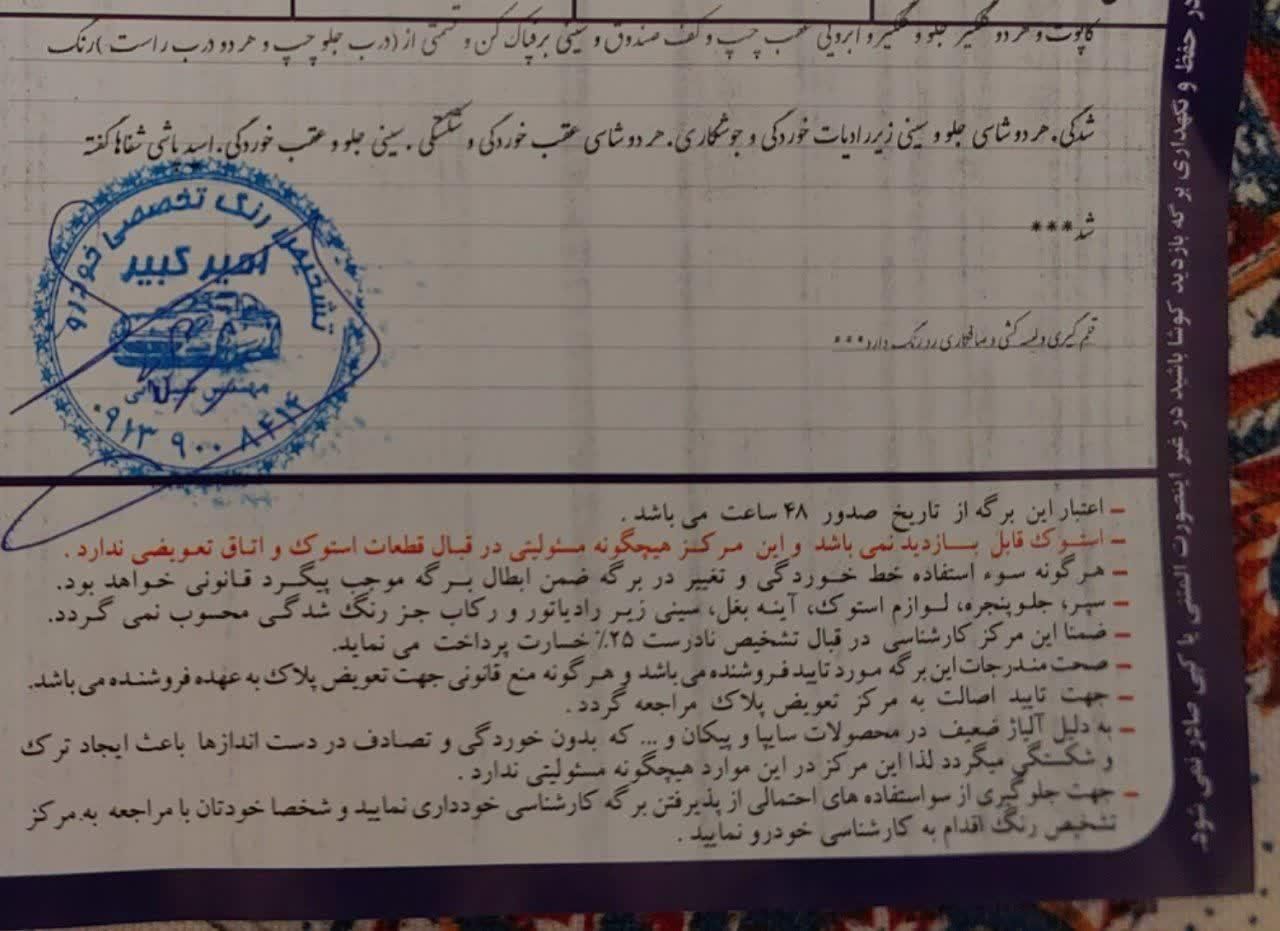 کاپوت و هر دو گلگیر جلو و گلگیر و ابرویی عقب چپ و کف صندوق و سینی برفپاک کن و قسمتی از (درب جلو چپ و هر دو درب راست )رنگ
شدگی. هر دو شاسی جلو و سینی زیررادیات خوردگی و جوشکاری. هر دو شاسی عقب خوردگی و شکستگی . سینی جلو و عقب خوردگی. اسد باشی شفاها گفته
شد***
قلم گیری و لیسه کشی و صافکاری رد رنگ دارد***
تشخیص رنگ تخصصی خودرو
امیر کبیر
مهندس
۰۹۱۳ ۹۰۰ ۸۴۱۴
– اعتبار این برگه از تاریخ صدور ۴۸ ساعت می باشد .
– استوک قابل بازدید نمی باشد و این مرکز هیچگونه مسئولیتی در قبال قطعات استوک و اتاق تعویضی ندارد .
– هرگونه سوء استفاده خط خوردگی و تغییر در برگه ضمن ابطال برگه موجب پیگرد قانونی خواهد بود.
– سپر، جلوپنجره، لوازم استوک، آینه بغل، سینی زیر رادیاتور و رکاب جز رنگ شدگی محسوب نمی گردد.
– ضمنا این مرکز کارشناسی در قبال تشخیص نادرست ۲۵٪ خسارت پرداخت می نماید.
– صحت مندرجات این برگه مورد تایید فروشنده می باشد و هرگونه منع قانونی جهت تعویض پلاک به عهده فروشنده می باشد.
– جهت تایید اصالت به مرکز تعویض پلاک مراجعه گردد .
– به دلیل آلیاژ ضعیف در محصولات سایپا و پیکان و ... که بدون خوردگی و تصادف در دست اندازها باعث ایجاد ترک
و شکستگی میگردد لذا این مرکز در این موارد هیچگونه مسئولیتی ندارد .
– جهت جلوگیری از سواستفاده های احتمالی از پذیرفتن برگه کارشناسی خودداری نمایید و شخصا خودتان با مراجعه به مرکز
تشخیص رنگ اقدام به کارشناسی خودرو نمایید .
در حفظ و نگهداری برگه بازدید کوشا باشید در غیر اینصورت المثنی یا کپی صادر نمی شود.